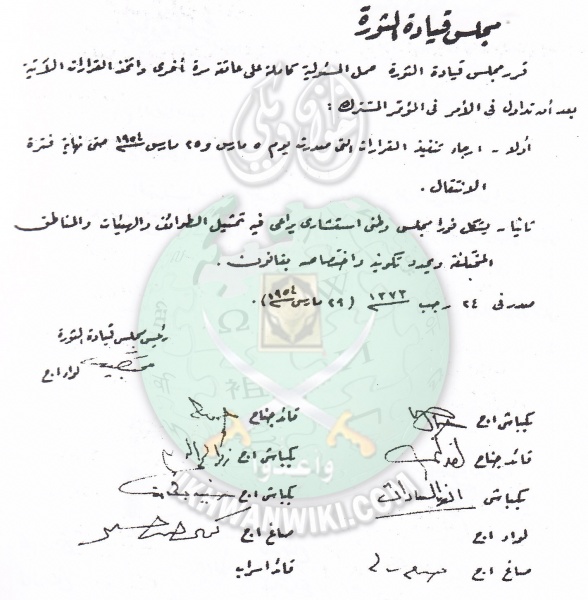 مجلس قيادة الثورة
قرر مجلس قيادة الثورة حمل المسئولية كاملة على عاتقه مرة أخرى واتخذ القرارات الآتية
بعد أن تداول فى الأمر فى المؤتمر المشترك :
أولا - ارجاء تنفيذ القرارات التى صدرت يوم ٥ مارس و ٢٥ مارس ١٩٥٤ حتى نهاية فترة
الانتقال .
ثانيا - يشكل فورا مجلس وطنى استشارى يراعى فيه تمثيل الطوائف والهيئات والمناطق
المختلفة ويحدد تكوينه واختصاصه بقانون .
صدر فى ٢٤ رجب ١٣٧٣ ( ٢٩ مارس ١٩٥٤ ) .
رئيس مجلس قيادة الثورة
لواء ا ح
بكباشى ا ح
قائد جناح
قائد جناح
بكباشى ا ح
بكباشى انور السادات
بكباشى ا ح
لواء ا ح
صاغ ا ح
صاغ ا ح
قائد اسراب
وأعدوا
IKHWANWIKI.COM